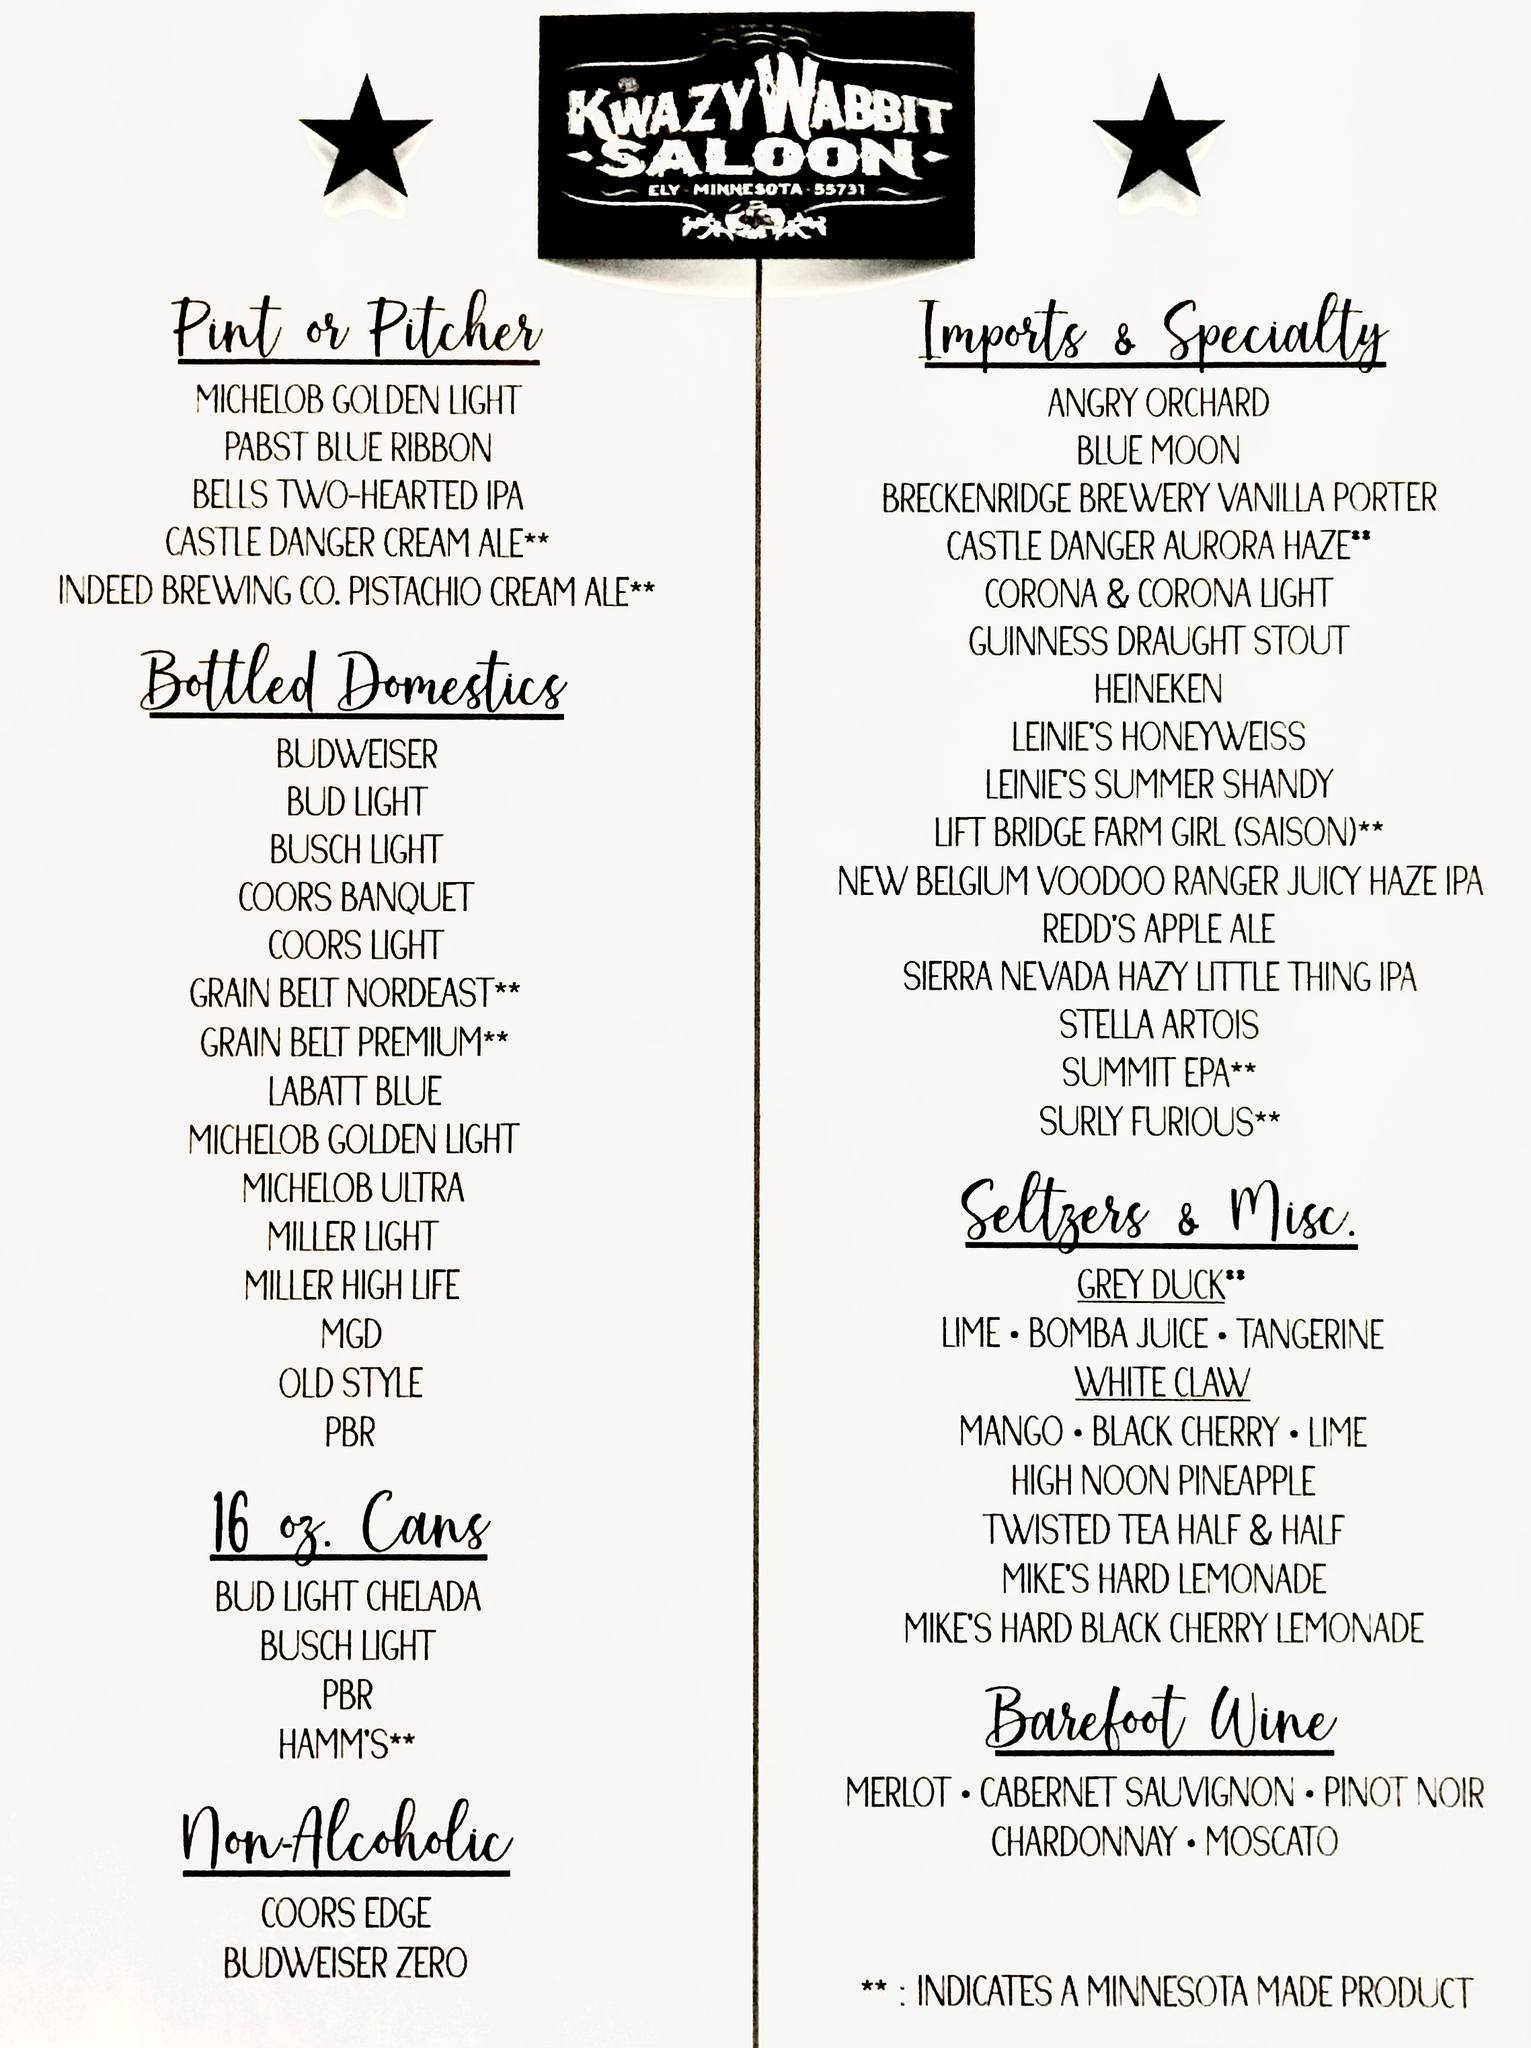 KWAZY WABBIT
SALOON
ELY · MINNESOTA · 55731
Pint or Pitcher
MICHELOB GOLDEN LIGHT
PABST BLUE RIBBON
BELLS TWO-HEARTED IPA
CASTLE DANGER CREAM ALE**
INDEED BREWING CO. PISTACHIO CREAM ALE**
Bottled Domestics
BUDWEISER
BUD LIGHT
BUSCH LIGHT
COORS BANQUET
COORS LIGHT
GRAIN BELT NORDEAST**
GRAIN BELT PREMIUM**
LABATT BLUE
MICHELOB GOLDEN LIGHT
MICHELOB ULTRA
MILLER LIGHT
MILLER HIGH LIFE
MGD
OLD STYLE
PBR
16 oz. Cans
BUD LIGHT CHELADA
BUSCH LIGHT
PBR
HAMM'S**
Non-Alcoholic
COORS EDGE
BUDWEISER ZERO
Imports & Specialty
ANGRY ORCHARD
BLUE MOON
BRECKENRIDGE BREWERY VANILLA PORTER
CASTLE DANGER AURORA HAZE**
CORONA & CORONA LIGHT
GUINNESS DRAUGHT STOUT
HEINEKEN
LEINIE'S HONEYWEISS
LEINIE'S SUMMER SHANDY
LIFT BRIDGE FARM GIRL (SAISON)**
NEW BELGIUM VOODOO RANGER JUICY HAZE IPA
REDD'S APPLE ALE
SIERRA NEVADA HAZY LITTLE THING IPA
STELLA ARTOIS
SUMMIT EPA**
SURLY FURIOUS**
Seltzers & Misc.
GREY DUCK**
LIME • BOMBA JUICE • TANGERINE
WHITE CLAW
MANGO • BLACK CHERRY • LIME
HIGH NOON PINEAPPLE
TWISTED TEA HALF & HALF
MIKE'S HARD LEMONADE
MIKE'S HARD BLACK CHERRY LEMONADE
Barefoot Wine
MERLOT • CABERNET SAUVIGNON • PINOT NOIR
CHARDONNAY • MOSCATO
** : INDICATES A MINNESOTA MADE PRODUCT